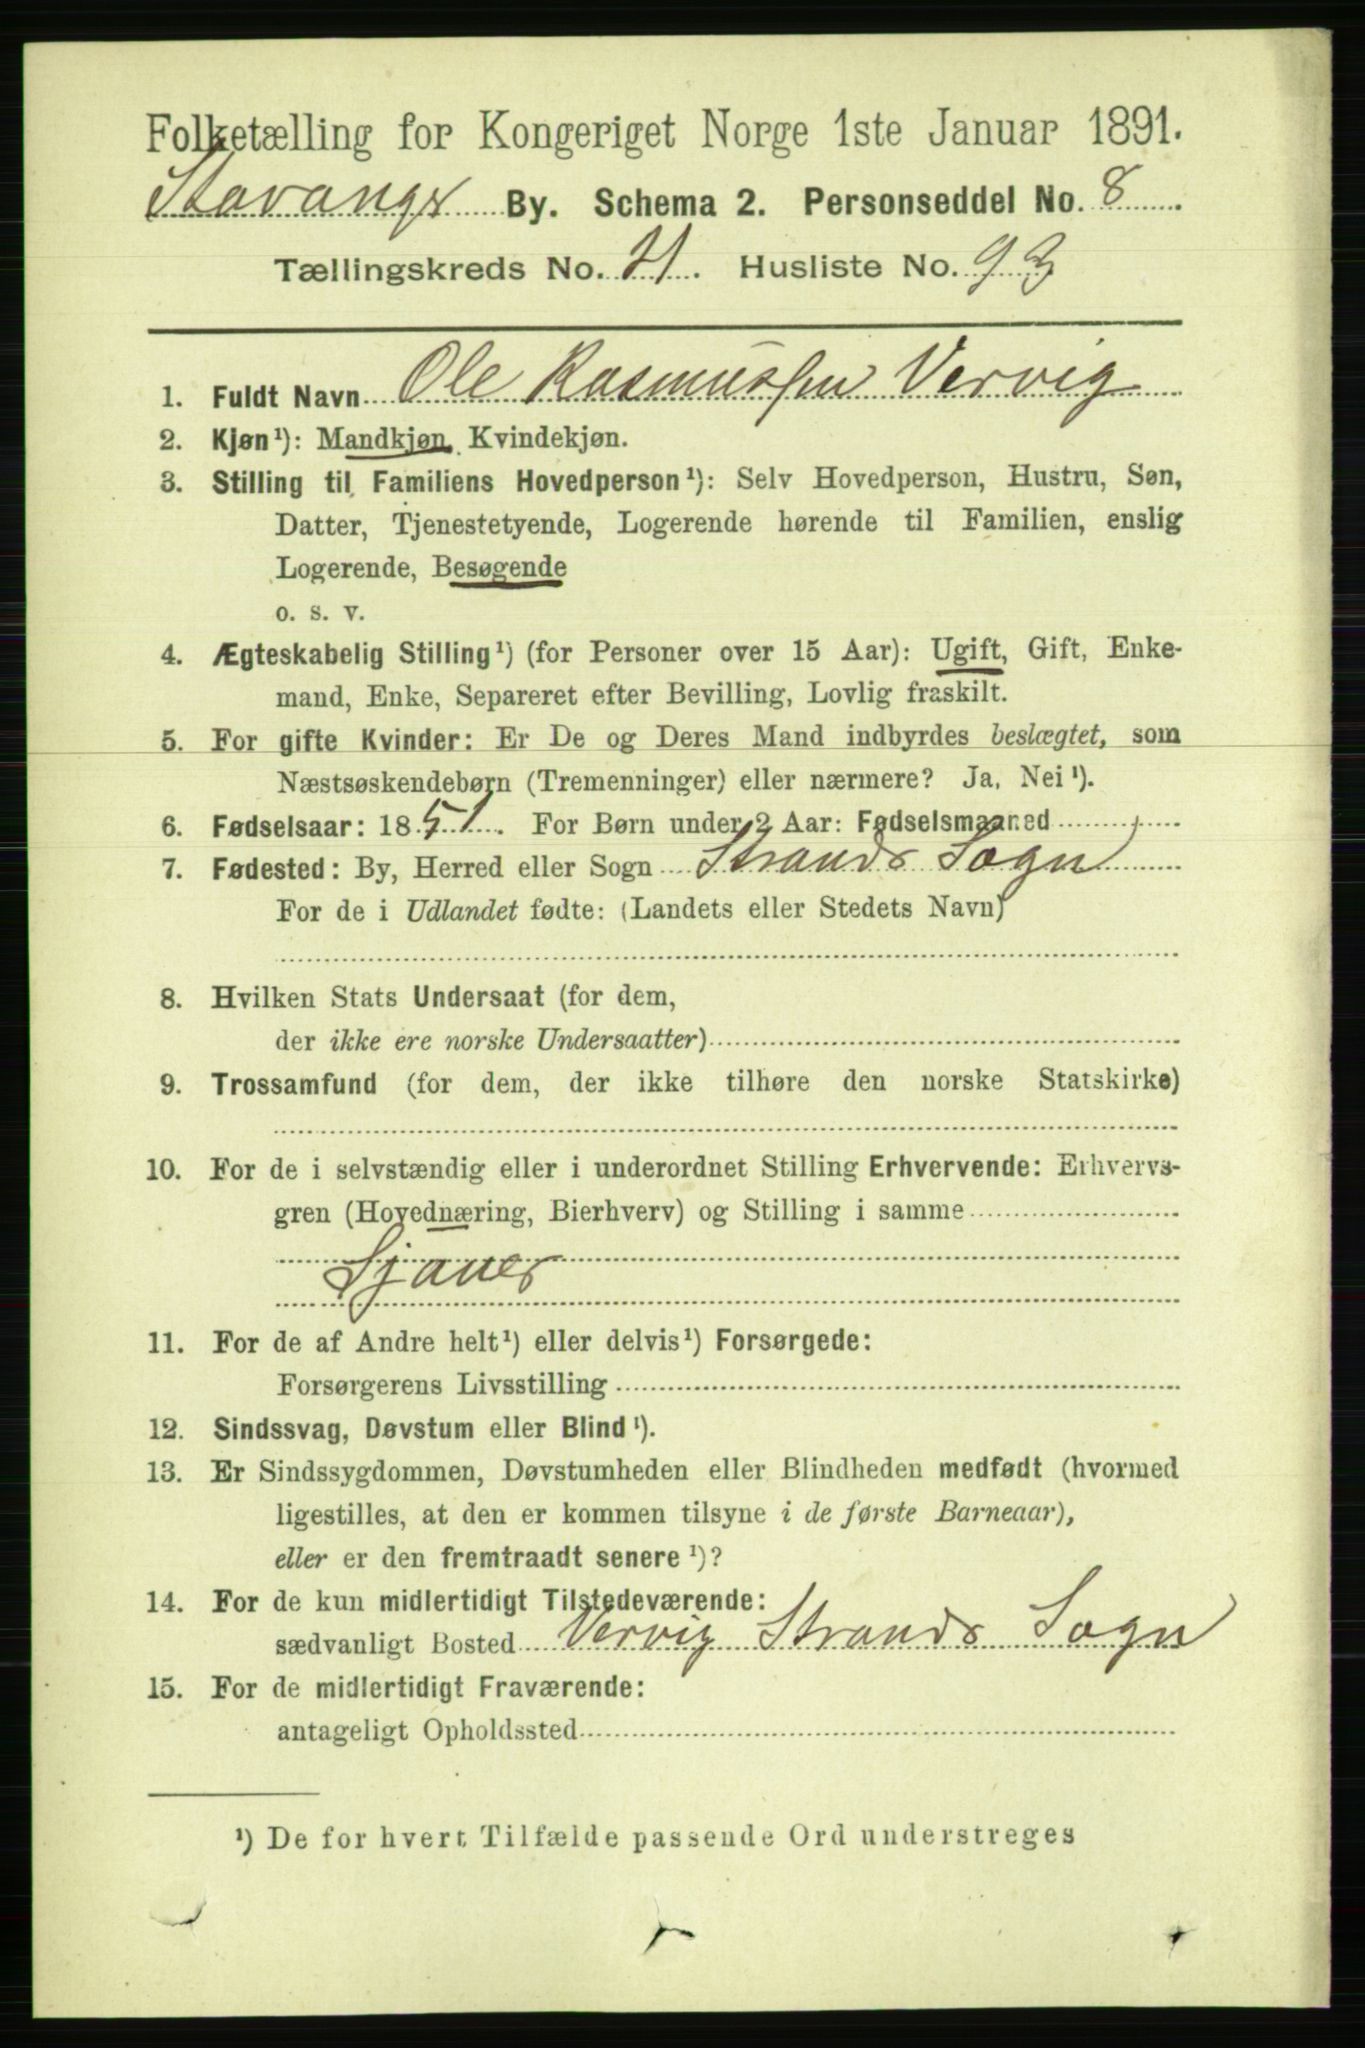 Folketælling for Kongeriget Norge 1ste Januar 1891.
Stavanger By. Schema 2. Personseddel No. 8
Tællingskreds No. 21. Husliste No. 93
1. Fuldt Navn Ole Rasmussen Vervig
2. Kjøn¹): Mandkjøn, Kvindekjøn.
3. Stilling til Familiens Hovedperson¹): Selv Hovedperson, Hustru, Søn,
Datter, Tjenestetyende, Logerende hørende til Familien, enslig
Logerende, Besøgende
o. s. v.
4. Ægteskabelig Stilling¹) (for Personer over 15 Aar): Ugift, Gift, Enke-
mand, Enke, Separeret efter Bevilling, Lovlig fraskilt.
5. For gifte Kvinder: Er De og Deres Mand indbyrdes beslægtet, som
Næstsøskendebørn (Tremenninger) eller nærmere? Ja, Nei¹).
6. Fødselsaar: 1851. For Børn under 2 Aar: Fødselsmaaned
7. Fødested: By, Herred eller Sogn Strands Sogn
For de i Udlandet fødte: (Landets eller Stedets Navn)
8. Hvilken Stats Undersaat (for dem,
der ikke ere norske Undersaatter)
9. Trossamfund (for dem, der ikke tilhøre den norske Statskirke)
10. For de i selvstændig eller i underordnet Stilling Erhvervende: Erhvervs-
gren (Hovednæring, Bierhverv) og Stilling i samme
Sjauer
11. For de af Andre helt¹) eller delvis¹) Forsørgede:
Forsørgerens Livsstilling
12. Sindssvag, Døvstum eller Blind¹).
13. Er Sindssygdommen, Døvstumheden eller Blindheden medfødt (hvormed
ligestilles, at den er kommen tilsyne i de første Barneaar),
eller er den fremtraadt senere¹)?
14. For de kun midlertidigt Tilstedeværende:
sædvanligt Bosted Vervig Strands Sogn
15. For de midlertidigt Fraværende:
antageligt Opholdssted
¹) De for hvert Tilfælde passende Ord understreges